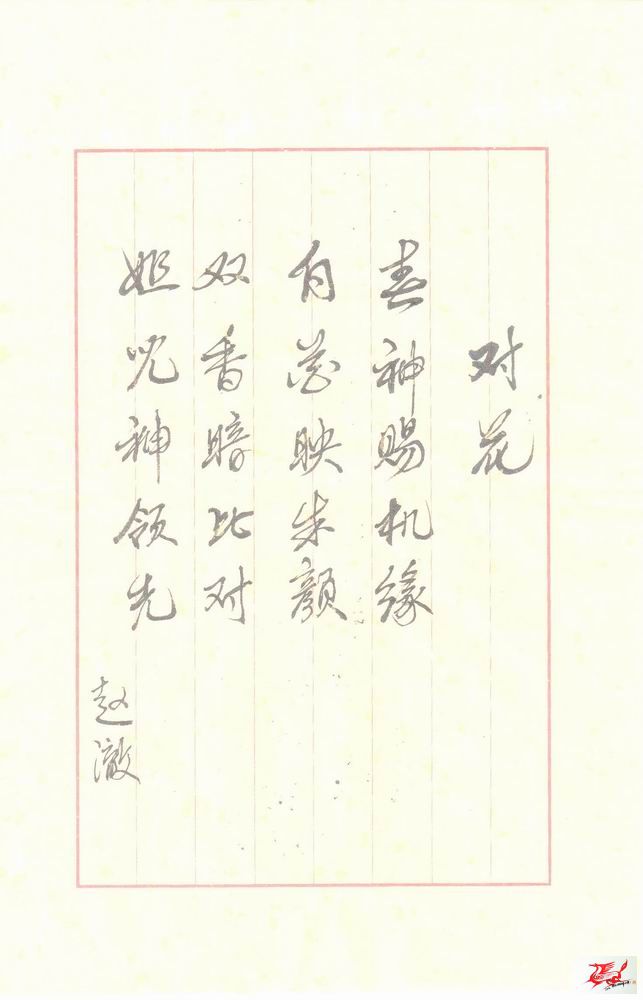 对花
春神赐机缘
白花映朱颜
双香暗比对
姐兄神领先
赵澈